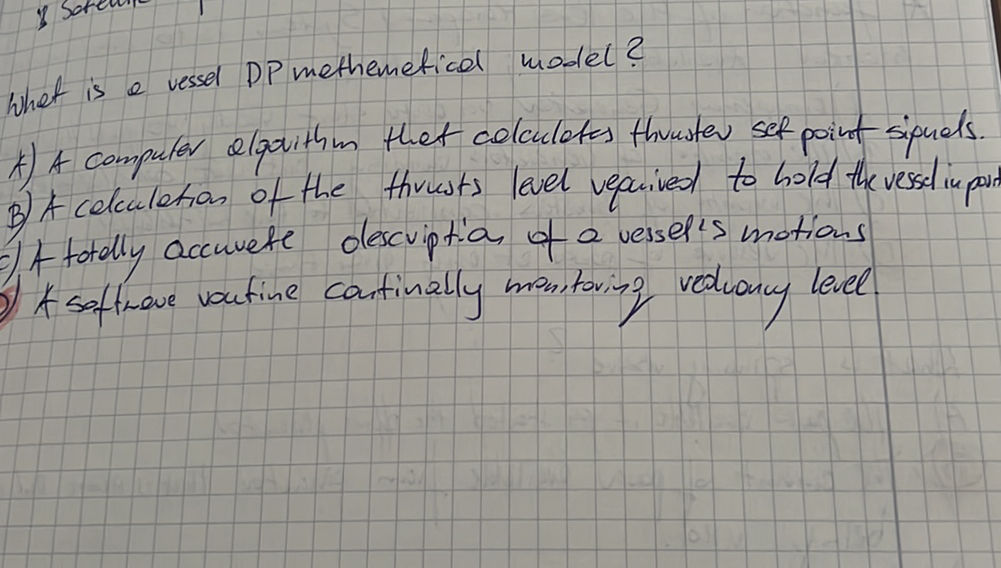 What is a vessel DP methemeticol model?
A) A computer algorithm that calculates thruster set point signals.
B) A calculation of the thrusts level required to hold the vessel in posit
C) A totally accurate description of a vessel's motions
D) A software routine continally monitoring
level.